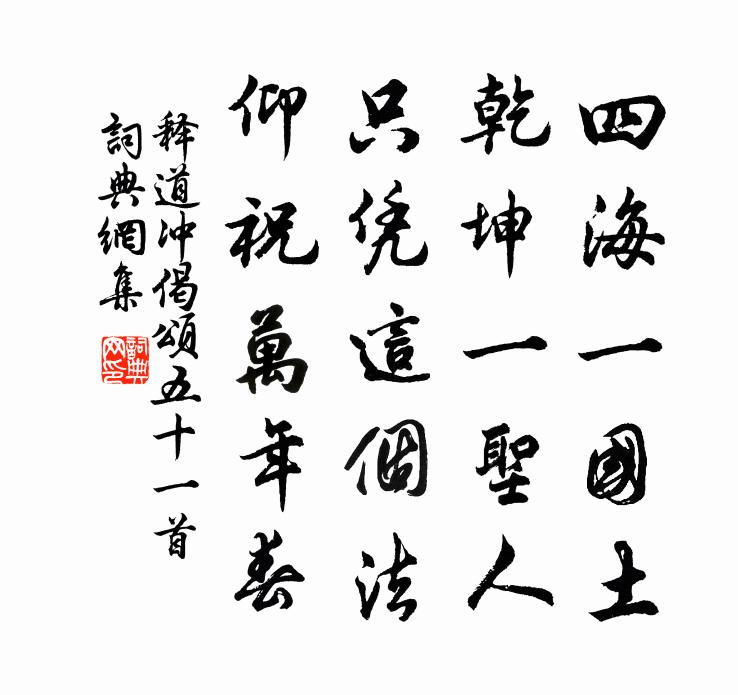 四海一國土
乾坤一聖人
只凭這個法
仰祝萬年春
释道冲偈頌五十一首
詞典網集
詞典
网印